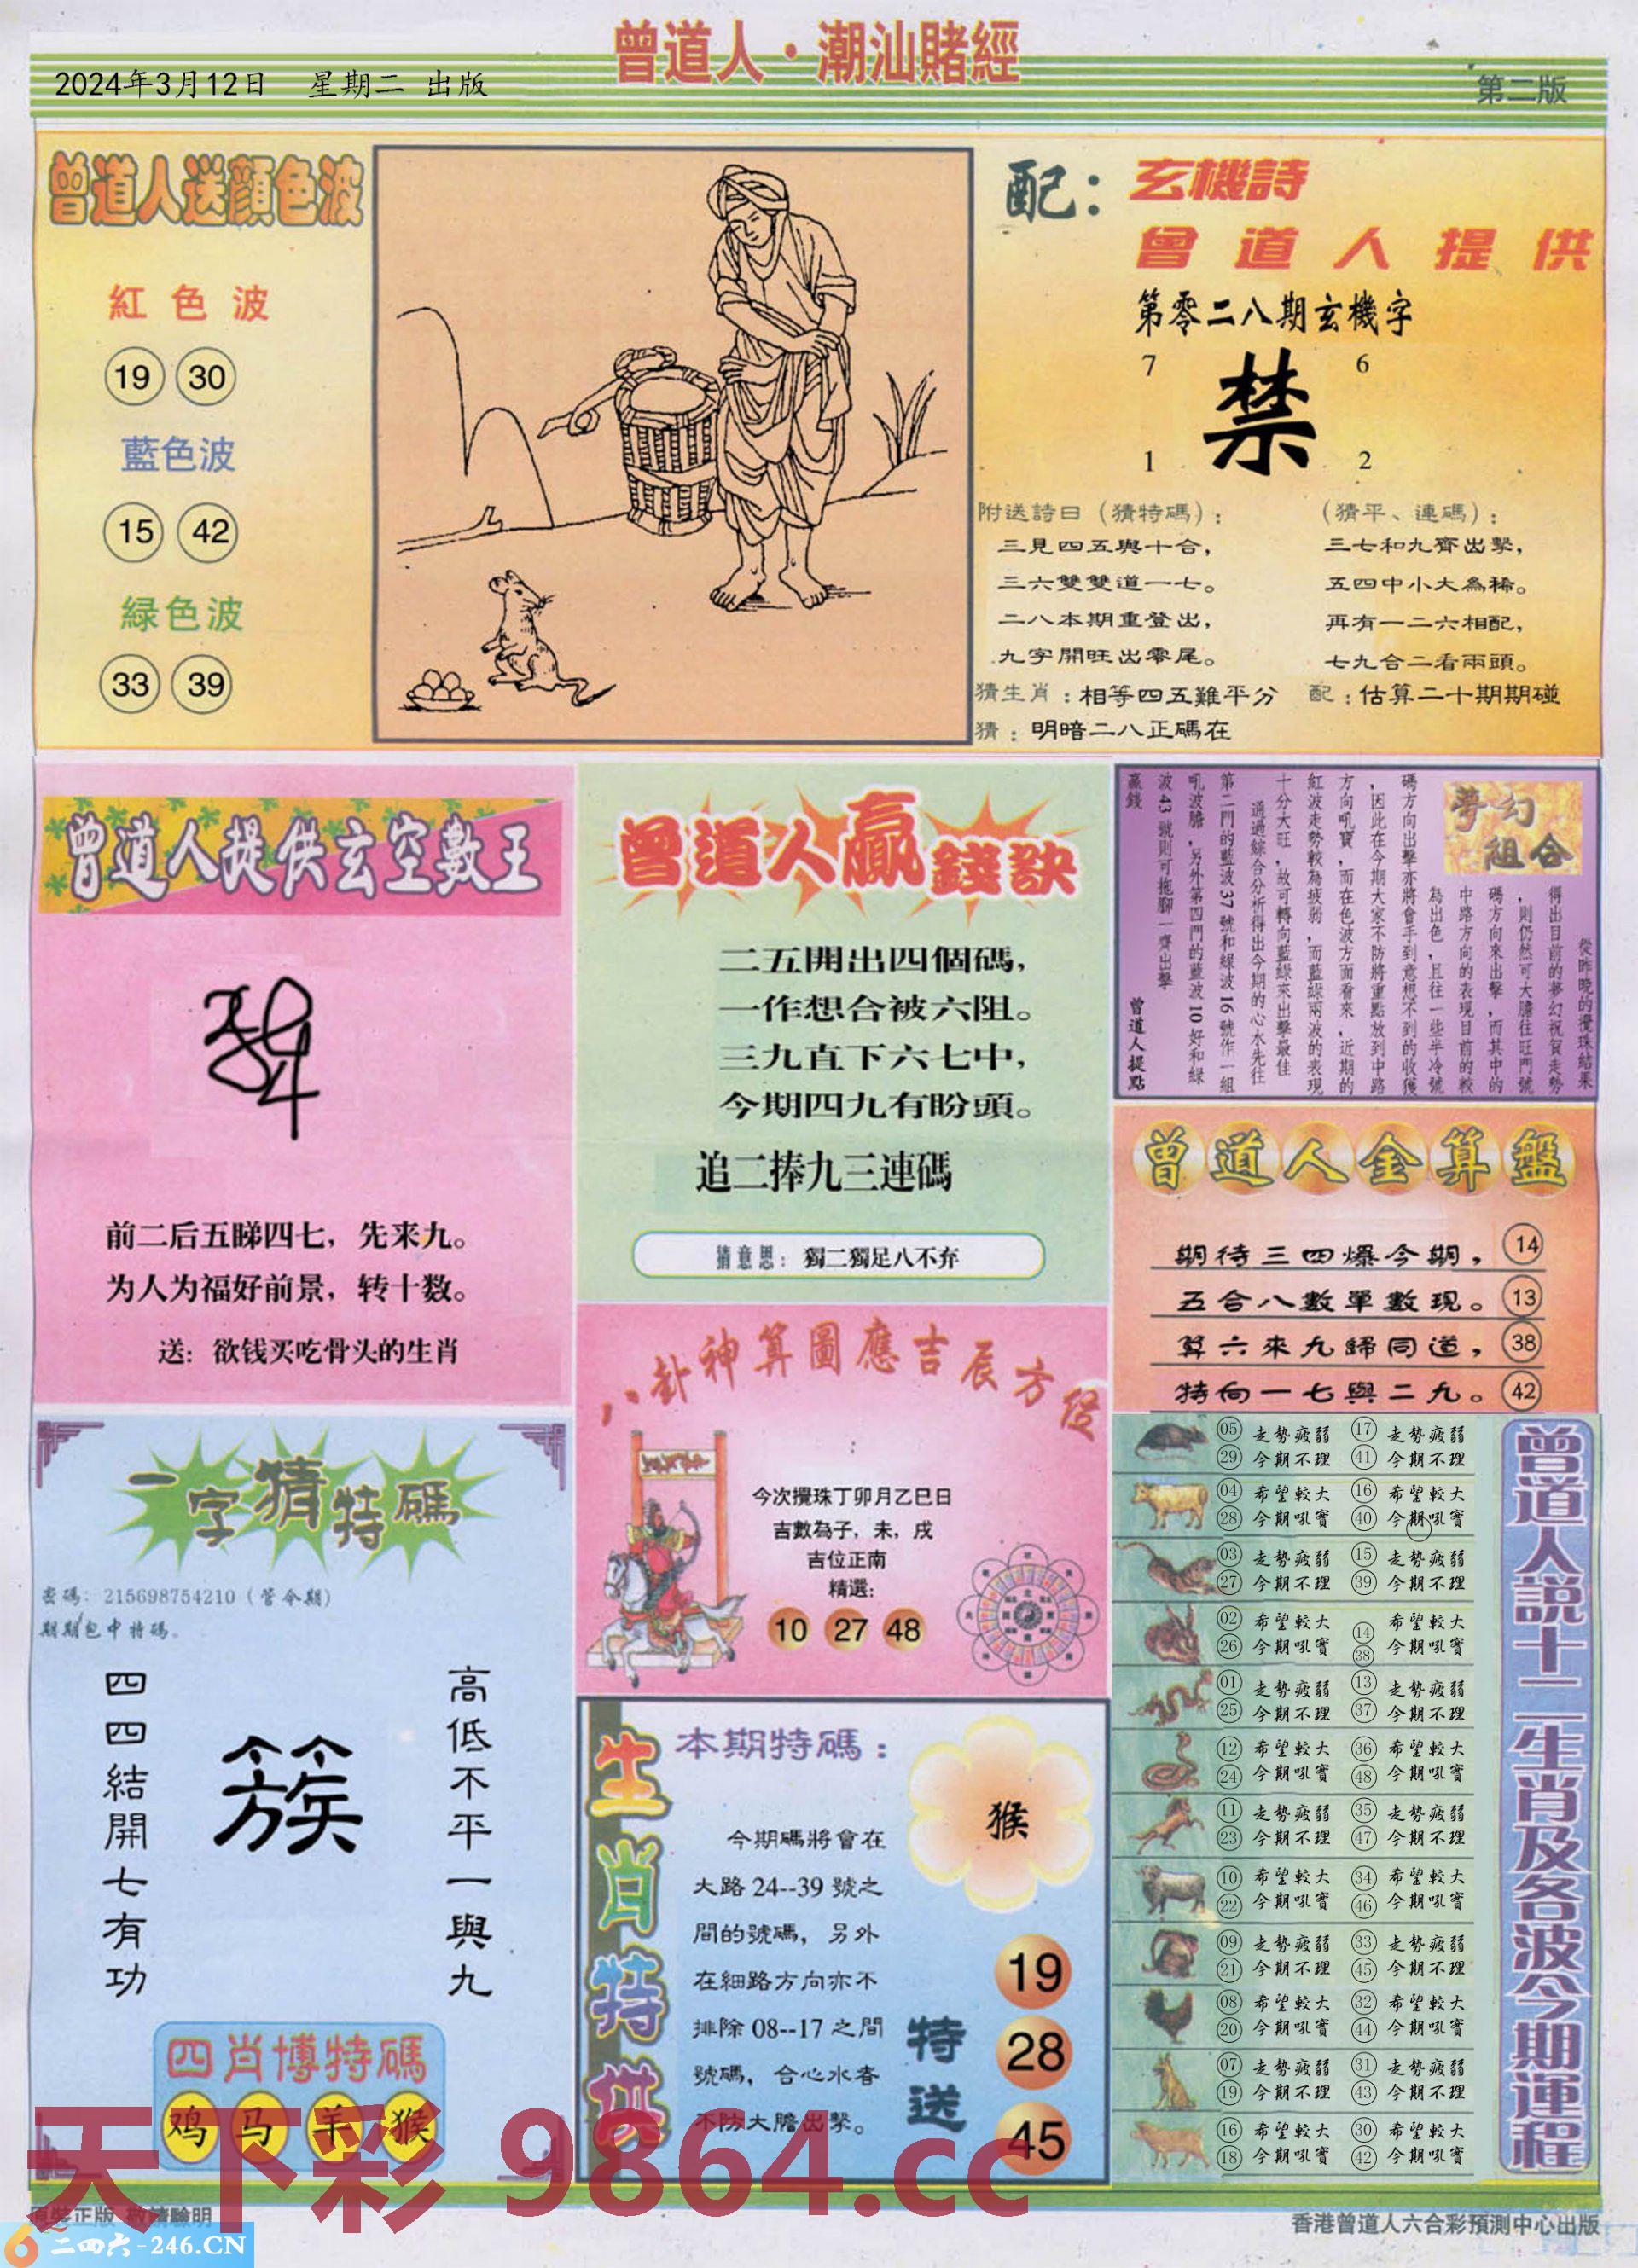 曾道人·潮汕賭經
2024年3月12日 星期二 出版
第二版
曾道人送顔色波
紅色波
19 30
藍色波
15 42
緑色波
33 39
配：
玄機詩
曾道人提供
第零二八期玄機字
7 6
禁
1 2
附送詩日（猜特碼）：
三見四五與十合，
三六雙雙道一七。
二八本期重登出，
九字開旺出零尾。
（猜平、連碼）：
三七和九齊出擊，
五四中小大為稀。
再有一二六相配，
七九合二看兩頭。
猜生肖：相等四五難平分
配：估算二十期期碰
猜：明暗二八正碼在
曾道人提供玄空數王
前二后五睇四七，先来九。
为人为福好前景，转十数。
送：欲钱买吃骨头的生肖
曾道人贏錢訣
二五開出四個碼，
一作想合被六阻。
三九直下六七中，
今期四九有盼頭。
追二捧九三連碼
猜意思：獨二獨足八不弃
夢幻
組合
從昨晚的攪珠結果
得出目前的夢幻祝賀走勢
，則仍然可大膽往旺門號
碼方向來出擊，而其中的
中路方向的表現目前的較
為出色，且往一些半冷號
碼方向出擊亦將會手到意想不到的收獲
，因此在今期大家不防將重點放到中路
方向吼寶，而在色波方面看來，近期的
紅波走勢較為疲弱，而藍綠兩波的表現
十分大旺，故可轉向藍綠來出擊最佳
通過綜合分析得出今期的心水先往
第二門的藍波37號和綠波16號作一組
吼波膽，另外第四門的藍波10好和綠
波43號則可拖腳一齊出擊
贏錢
曾道人提點
曾道人金算盤
期待三四爆今期， 14
五合八數單數現。 13
算六來九歸同道， 38
特向一七與二九。 42
八卦神算圖應吉辰方位
今次攪珠丁卯月乙巳日
吉數為子，未，戌
吉位正南
精選：
10 27 48
一字猜特碼
密碼：215698754210（管令期）
期期包中特碼。
四四結開七有功
簇
高低不平一與九
四肖博特碼
鸡 马 羊 猴
生肖特供
本期特碼：
猴
今期碼將會在
大路24--39號之
間的號碼，另外
在細路方向亦不
排除08--17之間
號碼，合心水者
不防大膽出擊。
特送
19
28
45
05 走勢疲弱 17 走勢疲弱
29 今期不理 41 今期不理
04 希望較大 16 希望較大
28 今期吼寶 40 今期吼寶
03 走勢疲弱 15 走勢疲弱
27 今期不理 39 今期不理
02 希望較大 14 希望較大
26 今期吼寶 38 今期吼寶
01 走勢疲弱 13 走勢疲弱
25 今期不理 37 今期不理
12 希望較大 36 希望較大
24 今期吼寶 48 今期吼寶
11 走勢疲弱 35 走勢疲弱
23 今期不理 47 今期不理
10 希望較大 34 希望較大
22 今期吼寶 46 今期吼寶
09 走勢疲弱 33 走勢疲弱
21 今期不理 45 今期不理
08 希望較大 32 希望較大
20 今期吼寶 44 今期吼寶
07 走勢疲弱 31 走勢疲弱
19 今期不理 43 今期不理
16 希望較大 30 希望較大
18 今期吼寶 42 今期吼寶
曾道人說十二生肖及各波今期運程
天下彩 9864.cc
原裝正版 敬請驗明
二四六-246.CN
香港曾道人六合彩預測中心出版